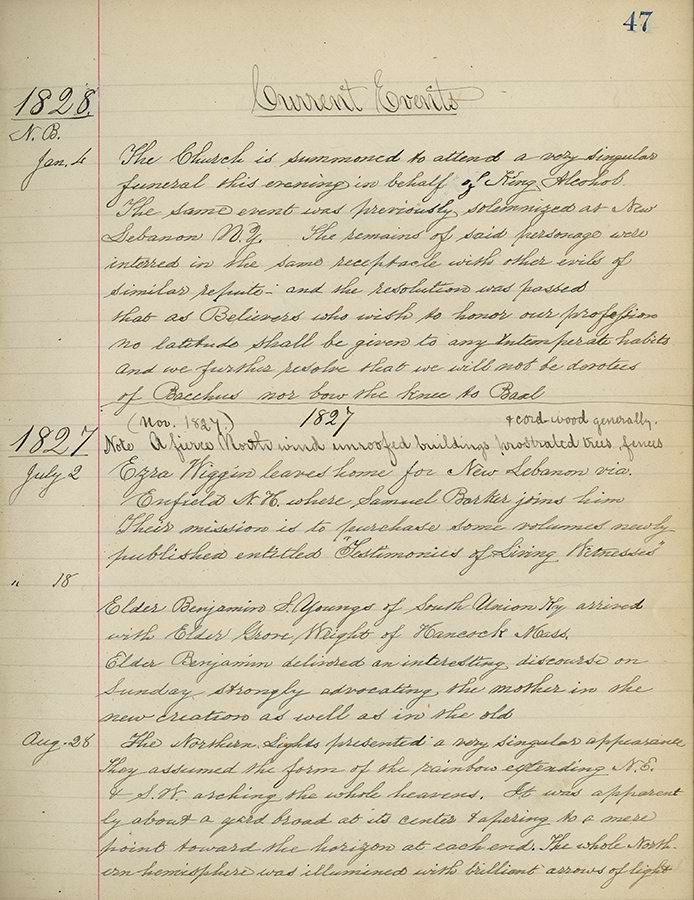 47
Current Events
1828.
N. B.
Jan. 4 The Church is summoned to attend a very singular
funeral this evening in behalf of King Alcohol.
The same event was previously solemnized at New
Lebanon N.Y. The remains of said personage were
interred in the same receptacle with other evils of
similar repute - and the resolution was passed
that as Believers who wish to honor our profession
no latitude shall be given to any Intemperate habits
and we further resolve that we will not be devotees
of Bacchus nor bow the knee to Baal
(Nov. 1827.) 1827 & cord wood generally.
1827 Note A fierce North wind unroofed buildings prostrated trees, fences
July 2 Ezra Wiggin leaves home for New Lebanon via.
Enfield N.H. where Samuel Barker joins him
Their mission is to purchase some volumes newly
published entitled "Testimonies of Living Witnesses"
" 18
Elder Benjamin S. Youngs of South Union Ky arrived
with Elder Grove Wright of Hancock Mass.
Elder Benjamin delivred an interesting discourse on
Sunday strongly advocating the mother in the
new creation as well as in the old
Aug. 28 The Northern Lights presented a very singular appearance
They assumed the form of the rainbow extending N.E.
& S.W. arching the whole heavens. It was apparent
ly about a yard broad at its center & tapering to a mere
point toward the horizon at each end. The whole North-
ern hemisphere was illumined with brilliant arrows of light